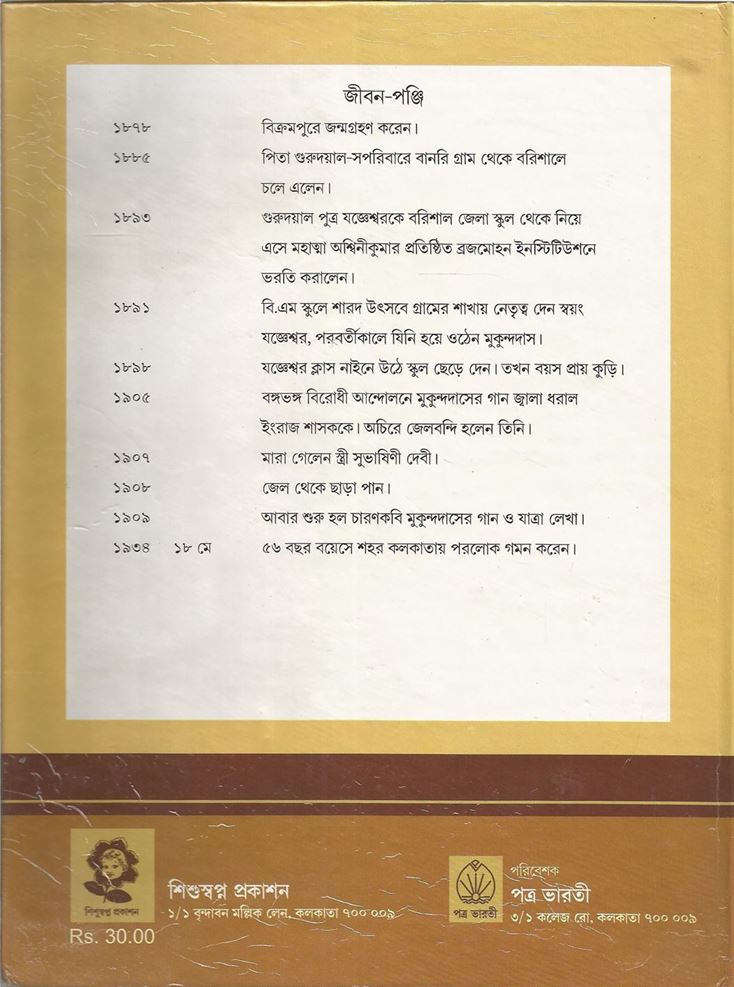 জীবন-পঞ্জি
১৮৭৮ বিক্রমপুরে জন্মগ্রহণ করেন।
১৮৮৫ পিতা গুরুদয়াল-সপরিবারে বানরি গ্রাম থেকে বরিশালে
চলে এলেন।
১৮৯৩ গুরুদয়াল পুত্র যজ্ঞেশ্বরকে বরিশাল জেলা স্কুল থেকে নিয়ে
এসে মহাত্মা অশ্বিনীকুমার প্রতিষ্ঠিত ব্রজমোহন ইনস্টিটিউশনে
ভরতি করালেন।
১৮৯১ বি.এম স্কুলে শারদ উৎসবে গ্রামের শাখায় নেতৃত্ব দেন স্বয়ং
যজ্ঞেশ্বর, পরবর্তীকালে যিনি হয়ে ওঠেন মুকুন্দদাস।
১৮৯৮ যজ্ঞেশ্বর ক্লাস নাইনে উঠে স্কুল ছেড়ে দেন। তখন বয়স প্রায় কুড়ি।
১৯০৫ বঙ্গভঙ্গ বিরোধী আন্দোলনে মুকুন্দদাসের গান জ্বালা ধরাল
ইংরাজ শাসককে। অচিরে জেলবন্দি হলেন তিনি।
১৯০৭ মারা গেলেন স্ত্রী সুভাষিণী দেবী।
১৯০৮ জেল থেকে ছাড়া পান।
১৯০৯ আবার শুরু হল চারণকবি মুকুন্দদাসের গান ও যাত্রা লেখা।
১৯৩৪ ১৮ মে ৫৬ বছর বয়েসে শহর কলকাতায় পরলোক গমন করেন।
শিশুস্বপ্ন প্রকাশন
শিশুস্বপ্ন প্রকাশন
১/১ বৃন্দাবন মল্লিক লেন, কলকাতা ৭০০ ০০৯
Rs. 30.00
পত্র ভারতী
পরিবেশক
পত্র ভারতী
৩/১ কলেজ রো, কলকাতা ৭০০ ০০৯